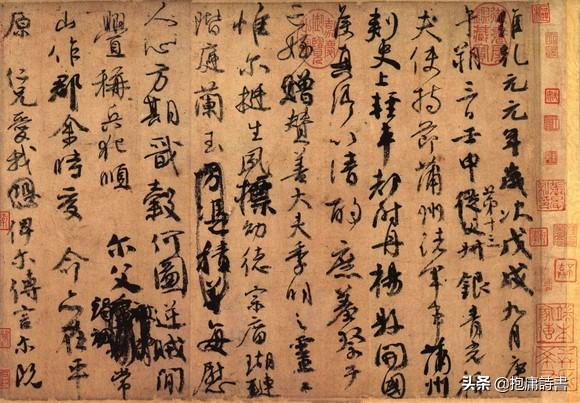 維乾元元年歲次戊戌九月庚
午朔三日壬申第十三從父銀青光祿
夫使持節蒲州諸軍事蒲州
刺史上輕車都尉丹楊縣開國
侯真卿以清酌庶羞祭于
亡姪贈贊善大夫季明之靈
惟爾挺生夙標幼德宗廟瑚璉
階庭蘭玉方憑積善每慰
人心方期戩穀何圖逆賊閒
釁稱兵犯順爾父竭誠常
山作郡余時受命亦在平
原仁兄愛我俾爾傳言爾既
头条 @抱庸詩書